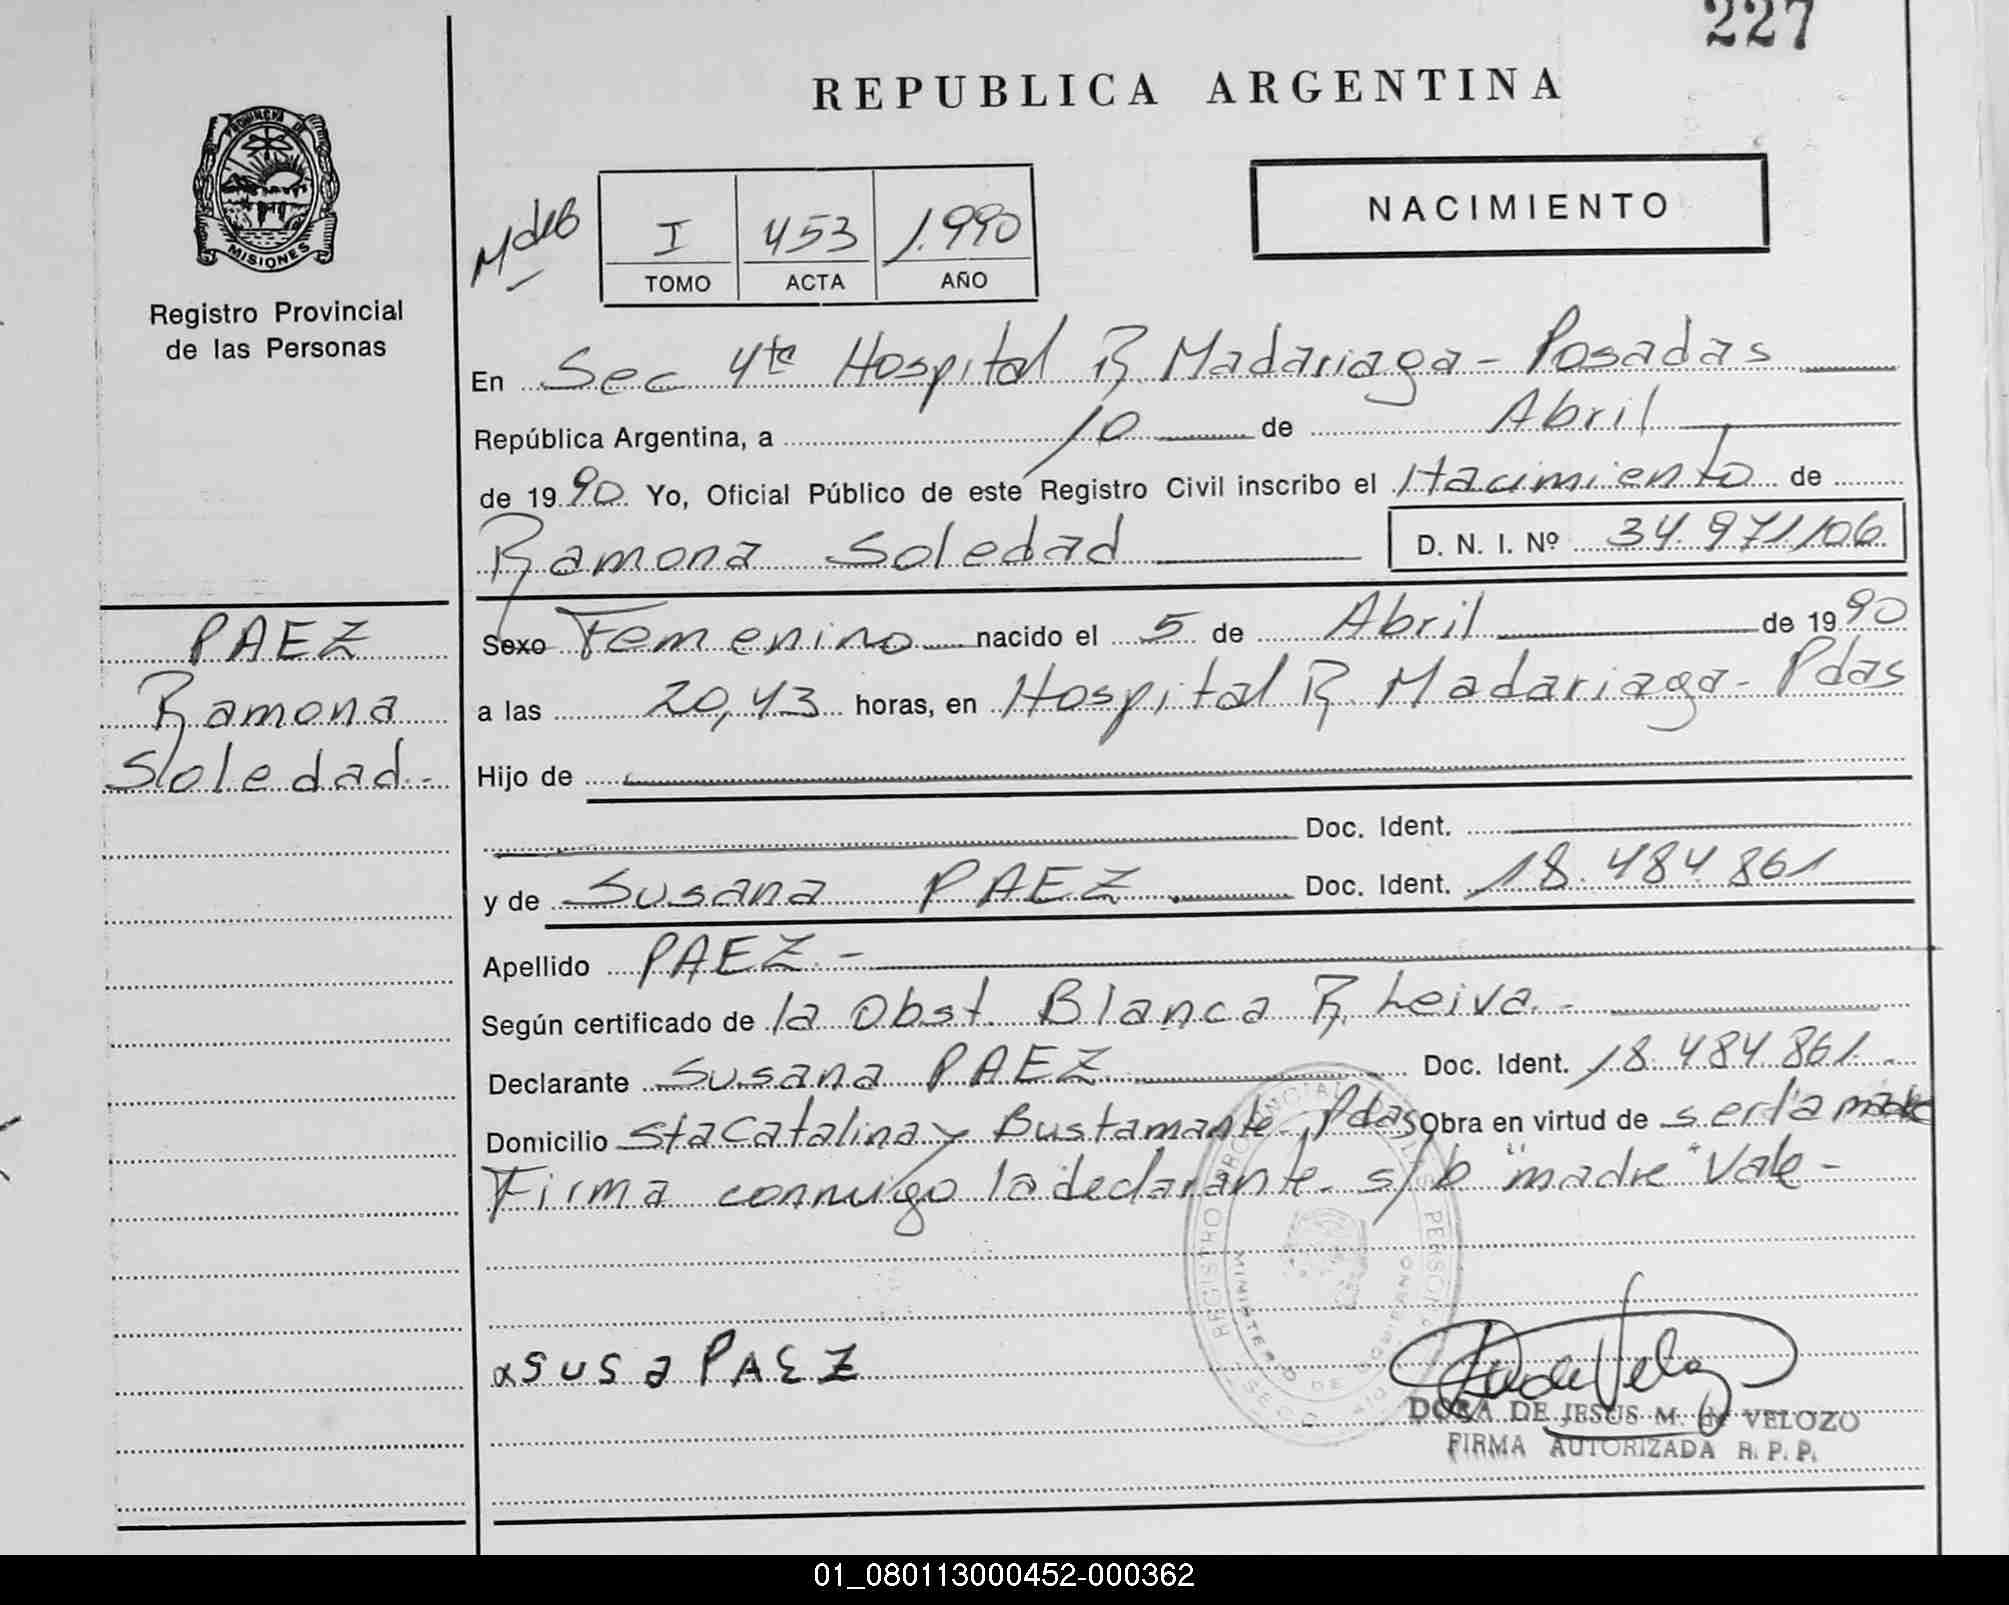 227
REPUBLICA ARGENTINA
PROVINCIA DE
MISIONES
Registro Provincial
de las Personas
I 453 1.990
TOMO ACTA AÑO
NACIMIENTO
En Sec 4ta Hospital R Madariaga - Posadas
República Argentina, a 10 de Abril
de 1990 Yo, Oficial Público de este Registro Civil inscribo el Nacimiento de
Ramona Soledad D. N. I. Nº 34.971.106
PAEZ
Ramona
Soledad.-
Sexo Femenino nacido el 5 de Abril de 1990
a las 20,43 horas, en Hospital R. Madariaga - Pdas
Hijo de
Doc. Ident.
y de Susana PAEZ Doc. Ident. 18.484.861
Apellido PAEZ.-
Según certificado de la Obst. Blanca R. Leiva.-
Declarante Susana PAEZ Doc. Ident. 18.484.861.
Domicilio Sta Catalina y Bustamante Pdas Obra en virtud de ser la madre
Firma conmigo la declarante. s/b "madre" Vale -
REGISTRO PROVINCIAL DE LAS PERSONAS
MINISTERIO DE GOBIERNO
SUSaPAEZ
DORA DE JESUS M. de VELOZO
FIRMA AUTORIZADA R. P. P.
01_080113000452-000362